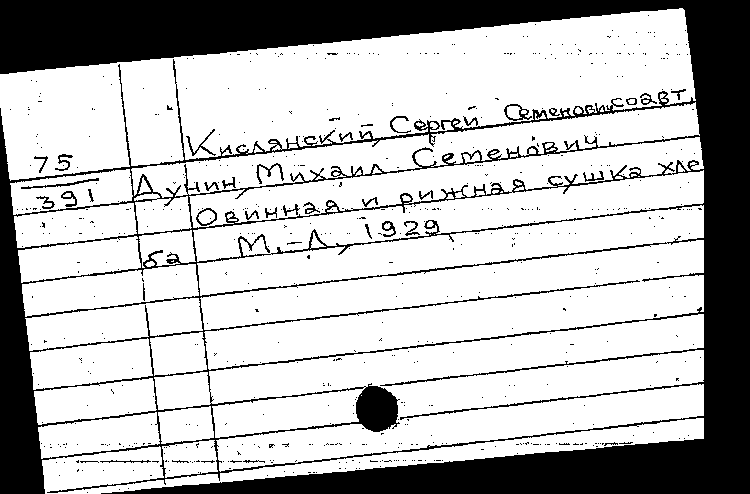 Кислянский, Сергей Семенович соавт.
75
391
Дунин, Михаил Семенович.
Овинная и рижная сушка хле
ба М.-Л., 1929